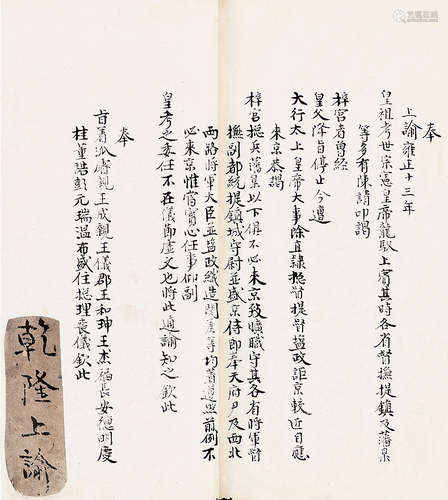 奉
上諭雍正十三年
皇祖考世宗憲皇帝龍馭上賓其時各省督撫提鎮及藩臬
等多有陳請叩謁
梓宮者曾經
皇父降旨停止今遭
大行太上皇帝大事除直隸總督提督鹽政距京較近自應
來京恭謁
梓宮總兵藩臬以下俱不必來京致曠職守其各省將軍督
撫副都統提鎮城守尉並盛京侍郎奉天府尹及西北
兩路將軍大臣並鹽政織造關差等均著遵照前例不
必來京惟當實心任事仰副
皇考之委任不在儀節虛文也將此通諭知之欽此
奉
旨著派睿親王成親王儀郡王和珅王杰福長安德明慶
桂董誥彭元瑞溫布盛住總理喪儀欽此
乾隆上諭